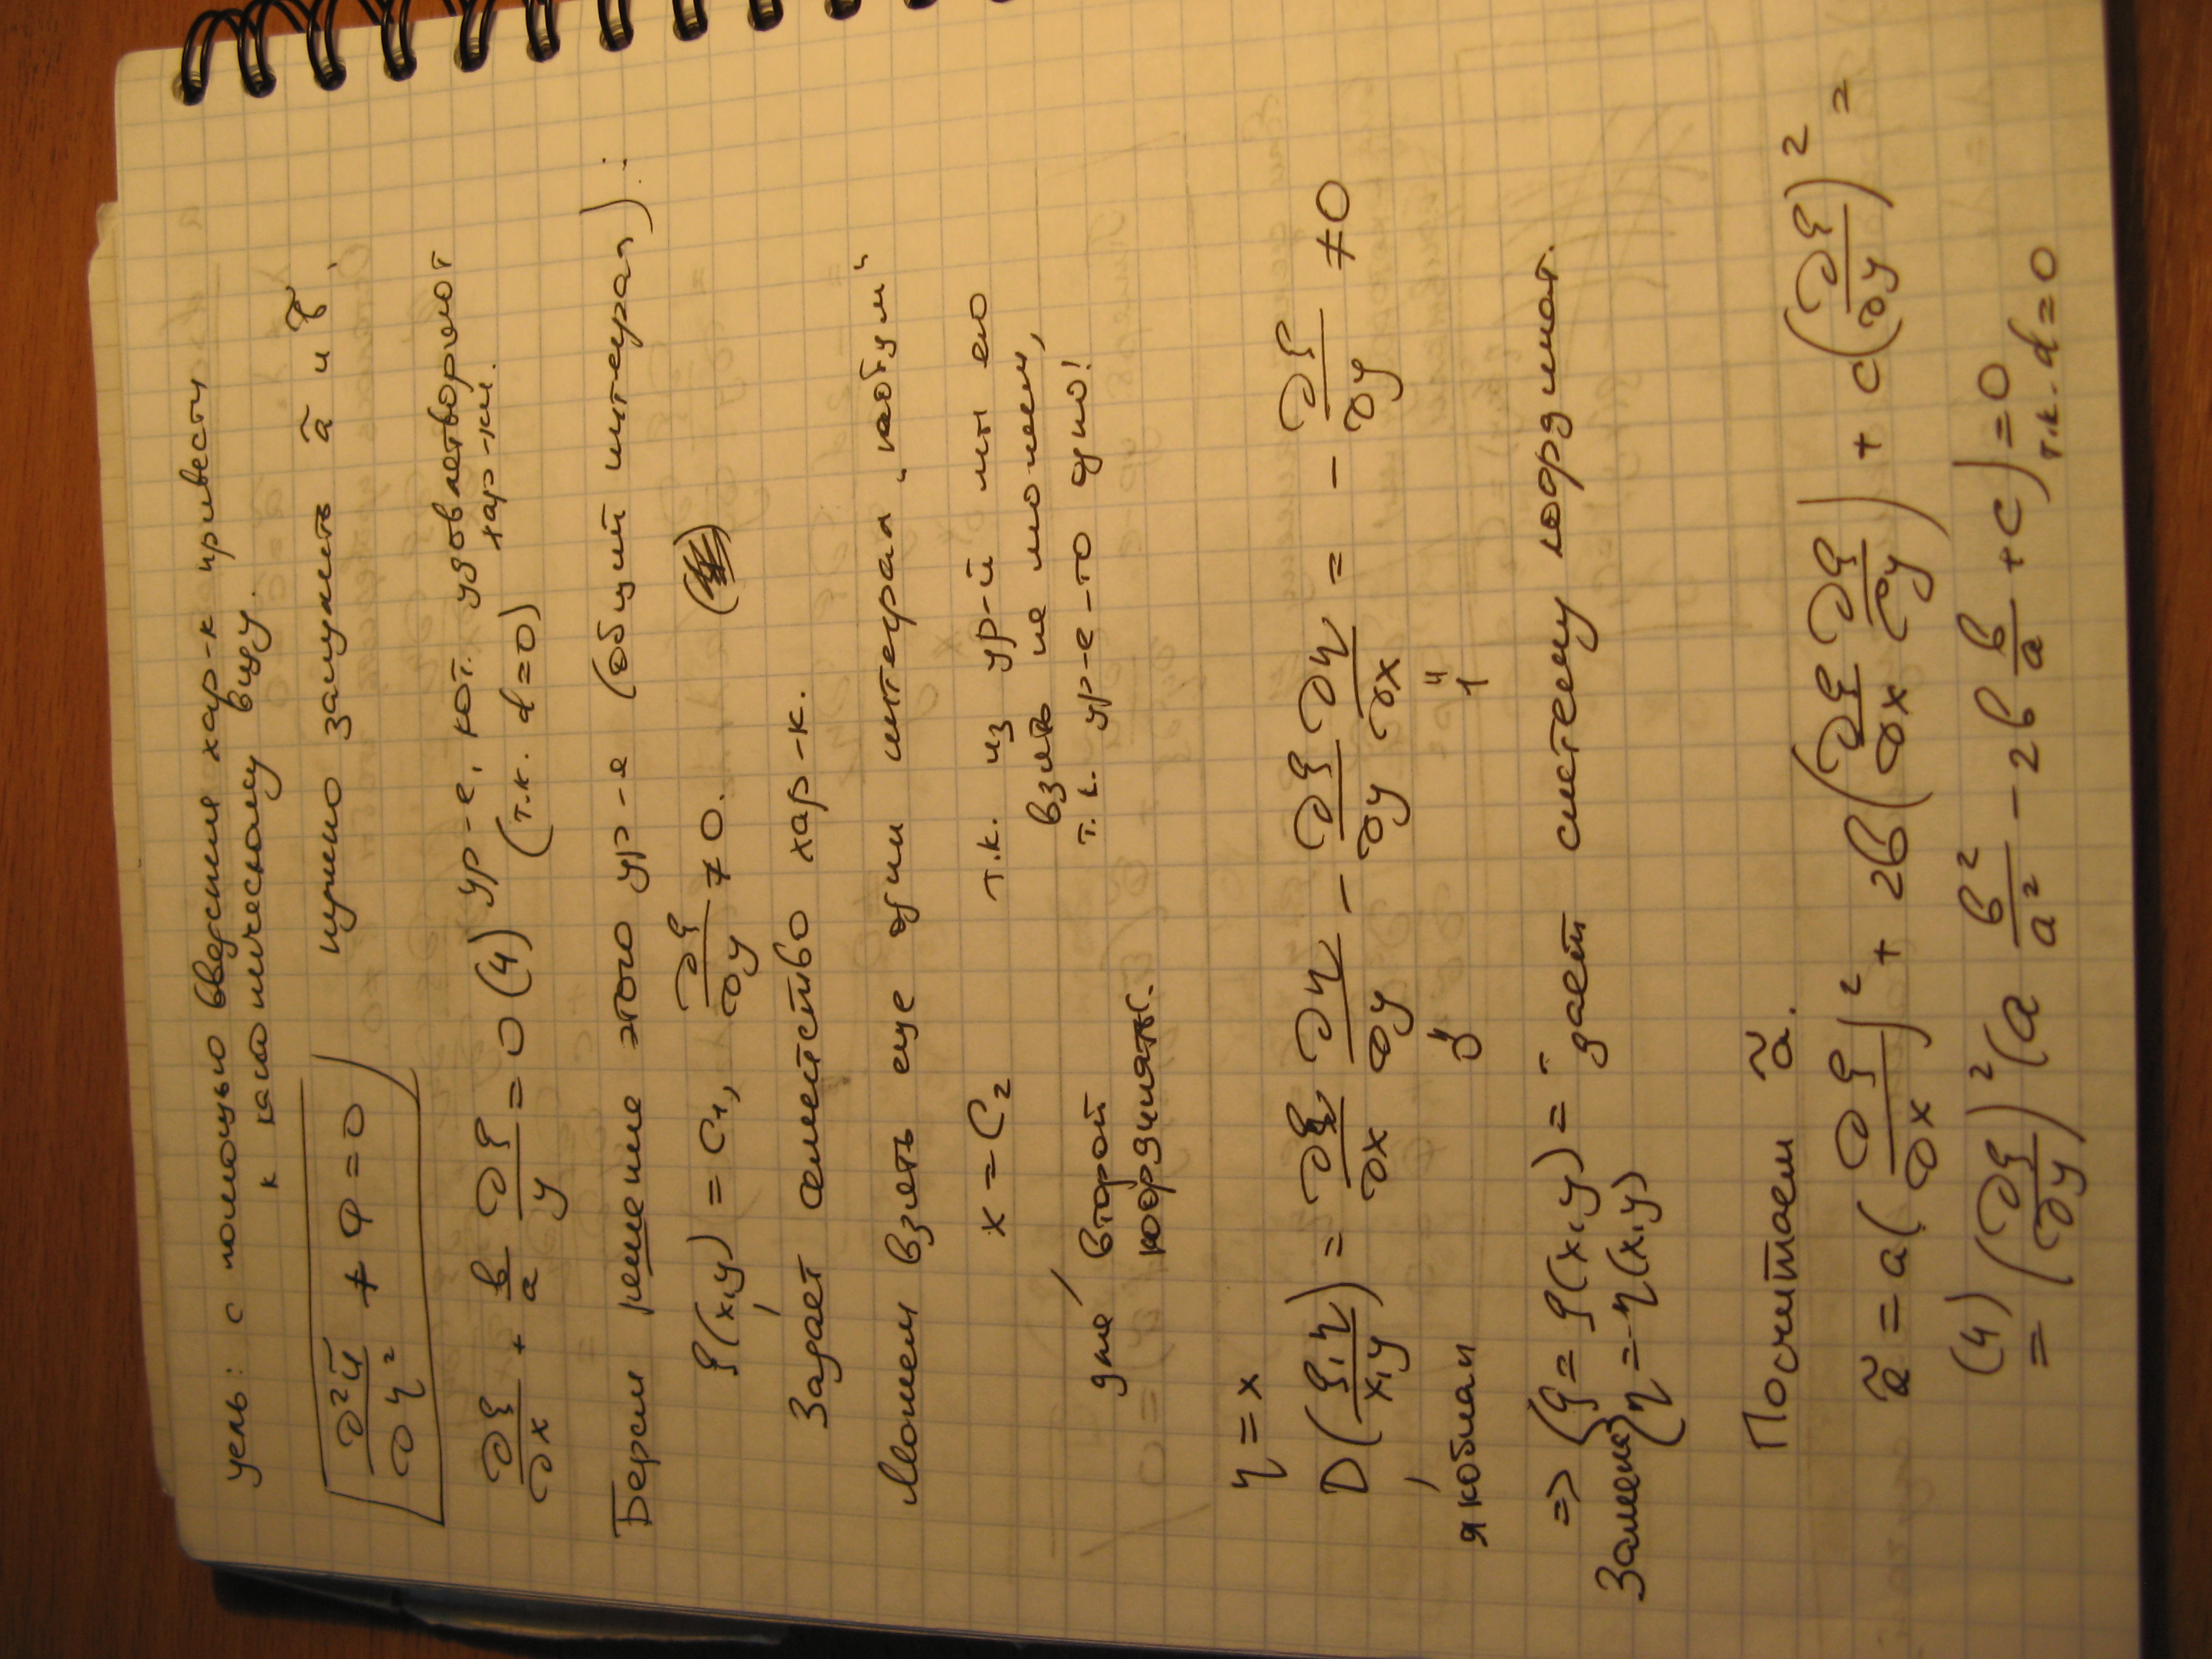 цель: с помощью введения хар-к привести
к каноническому виду.
∂²ũ/∂η² + Φ = 0 нужно занулить ã и b̃
∂ξ/∂x + b/a ∂ξ/y = 0 (4) ур-е, кот. удовлетворяют
(т.к. d=0) хар-ки.
Берем решение этого ур-е (общий интеграл):
ξ(x,y) = C₁, ∂ξ/∂y ≠ 0.
Задает семейство хар-к.
Можем взять еще один интеграл „наобум“
x = C₂ т.к. из ур-й мы его
взять не можем,
для второй т.к. ур-е-то одно!
координаты.
η = x
D(ξ,η/x,y) = ∂ξ/∂x ∂η/∂y - ∂ξ/∂y ∂η/∂x = - ∂ξ/∂y ≠ 0
якобиан 0 1
=> { ξ = ξ(x,y) = - дает систему координат.
Замена { η = η(x,y)
Посчитаем ã.
ã = a(∂ξ/∂x)² + 2b(∂ξ/∂x ∂ξ/∂y) + c(∂ξ/∂y)² =
(4) = (∂ξ/∂y)² (a b²/a² - 2b b/a + c) = 0
т.к. d=0